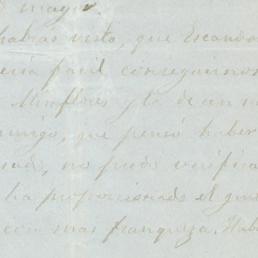 mayor.
habrás visto, que Escandon
ería facil conseguirnos
Miraflores y la de un
amigo, que pensó haber
no pudo verifica
ha proporcionado el que
con mas franqueza. Hab